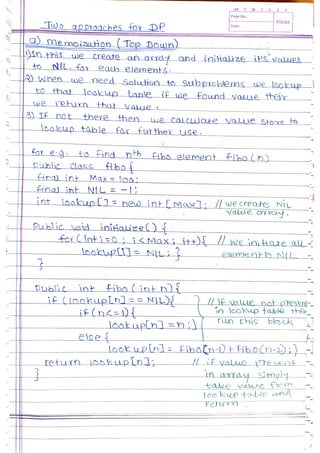 M T W T F S S
Page No.:
Date:
YOUVA
Two approaches for DP
a) Memoization (Top Down)
1) In this we create an array and initialize it's values
to NIL. for each elements.
2) When we need solution to subproblems we lookup
to that lookup table if we found value then
we return that value.
3) If not there then we calculate value store to
lookup table for further use.
for e.g: to find nth fibo element fibo(n)
public class fibo {
final int Max = 100;
final int NIL = -1;
int lookup[] = new int [Max]; // we create NIL
value array.
public void initialize() {
for (int i=0; i<Max; i++){ // we initiate all
lookup[i] = NIL; } elements NIL
}
public int fibo (int n) {
if (lookup[n] == NIL){ // if value not present
if (n<=1){ in lookup table then
lookup[n] = n;} run this block
else {
lookup[n] = fibo(n-1) + fibo(n-2);}
return lookup[n]; // if value present
} in array simply
take value from
lookup table and
return.